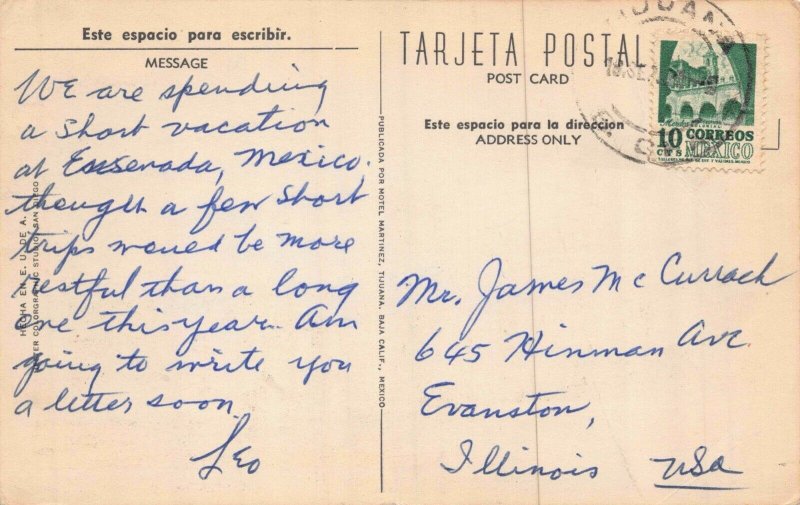 Este espacio para escribir.
MESSAGE
We are spending
a short vacation
at Ensenada, Mexico.
thought a few short
trips would be more
restful than a long
one this year. Am
going to write you
a letter soon.
Leo
HECHA EN E. U. DE A.
COLORGRAPHIC STUDIO, SAN DIEGO
PUBLICADA POR MOTEL MARTINEZ, TIJUANA, BAJA CALIF., MEXICO
TARJETA POSTAL
POST CARD
Este espacio para la direccion
ADDRESS ONLY
CORREOS
10 CTVS MEXICO
Mr. James McCurrach
645 Hinman Ave.
Evanston,
Illinois USA